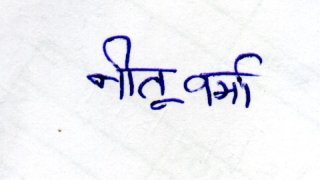 नीतू वर्मा